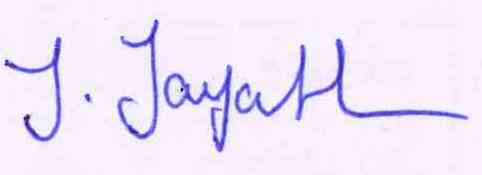 J. Jayath